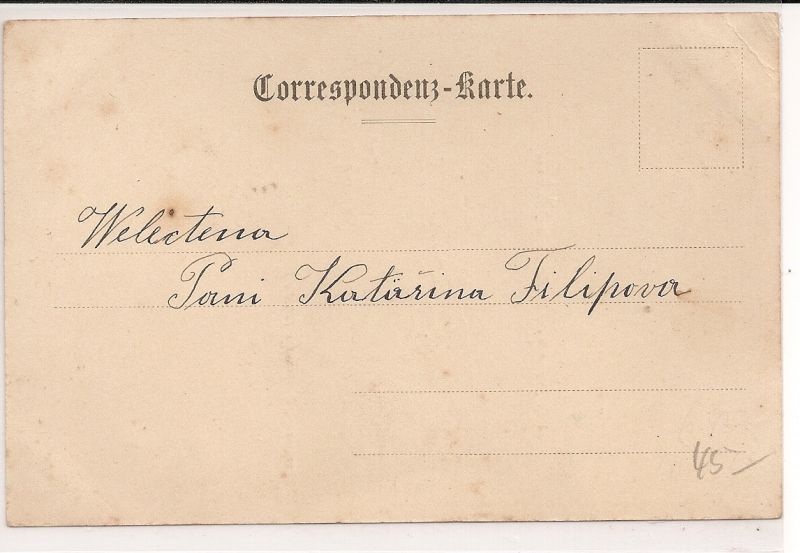 Correspondenz-Karte.
Welectena
Pani Katařina Filipova
45-